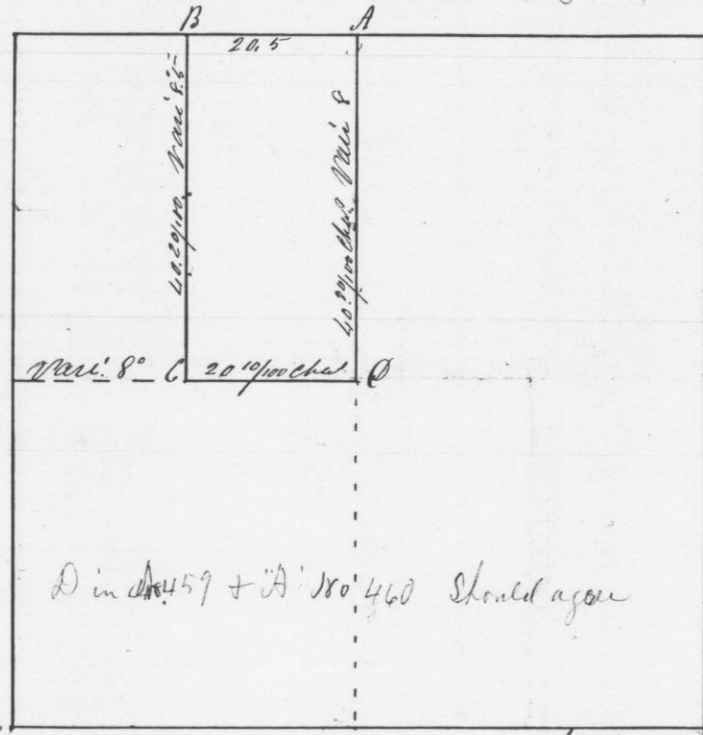 B A
20.5
40.29/100 Vari 8.5
40.29/100 Chs. Vari 8
Vari. 8° C 20 10/100 Chs. D
D in No 459 + "A" No 460 Should agree